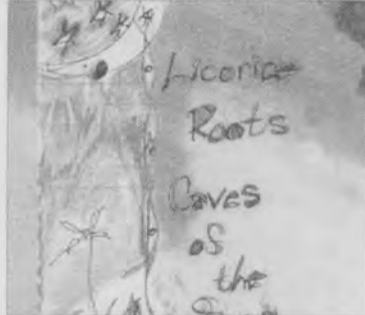 Licorice
Roots
Caves
of
the